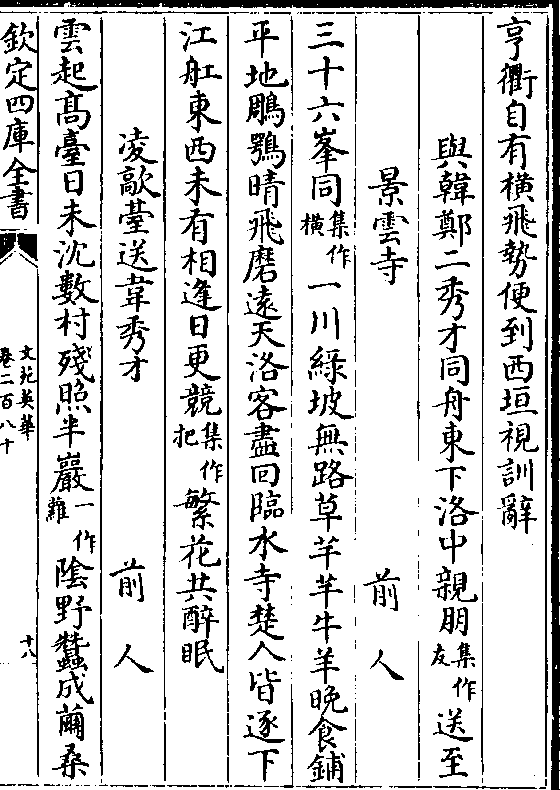 亨衢自有横飛勢便到西垣視訓辭
與韓鄭二秀才同舟東下洛中親朋集作友送至
景雲寺 前人
三十六峯同集作横一川緑坡無路草芊芊牛羊晚食鋪
平地鵰鶚晴飛磨遠天洛客盡回臨水寺楚人皆逐下
江舡東西未有相逢日更競集作把繁花共醉眠
凌歊臺送韋秀才 前人
雲起髙臺日未沈數村殘照半巖一作難隂野蠶成繭桑
欽定四庫全書
文苑英華
卷二百八十
十八